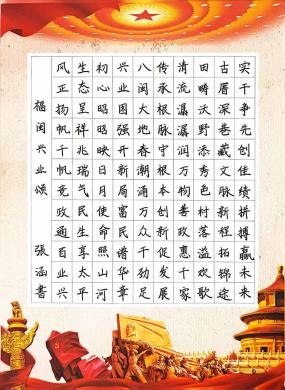 实干争先创佳绩拼搏赢未来
古厝深巷藏文脉新程拓锦途
田畴沃野添秀色村落溢欢歌
清流潺潺润万物善政惠千家
传承根脉守根本创新促发展
八闽大地春潮涌万众干劲足
兴业图强开新局富民谱华章
初心昭昭映日月使命照山河
生态呈祥兆瑞气民生享太平
风正扬帆千帆竞政通百业兴
福闽兴业颂 张涵书